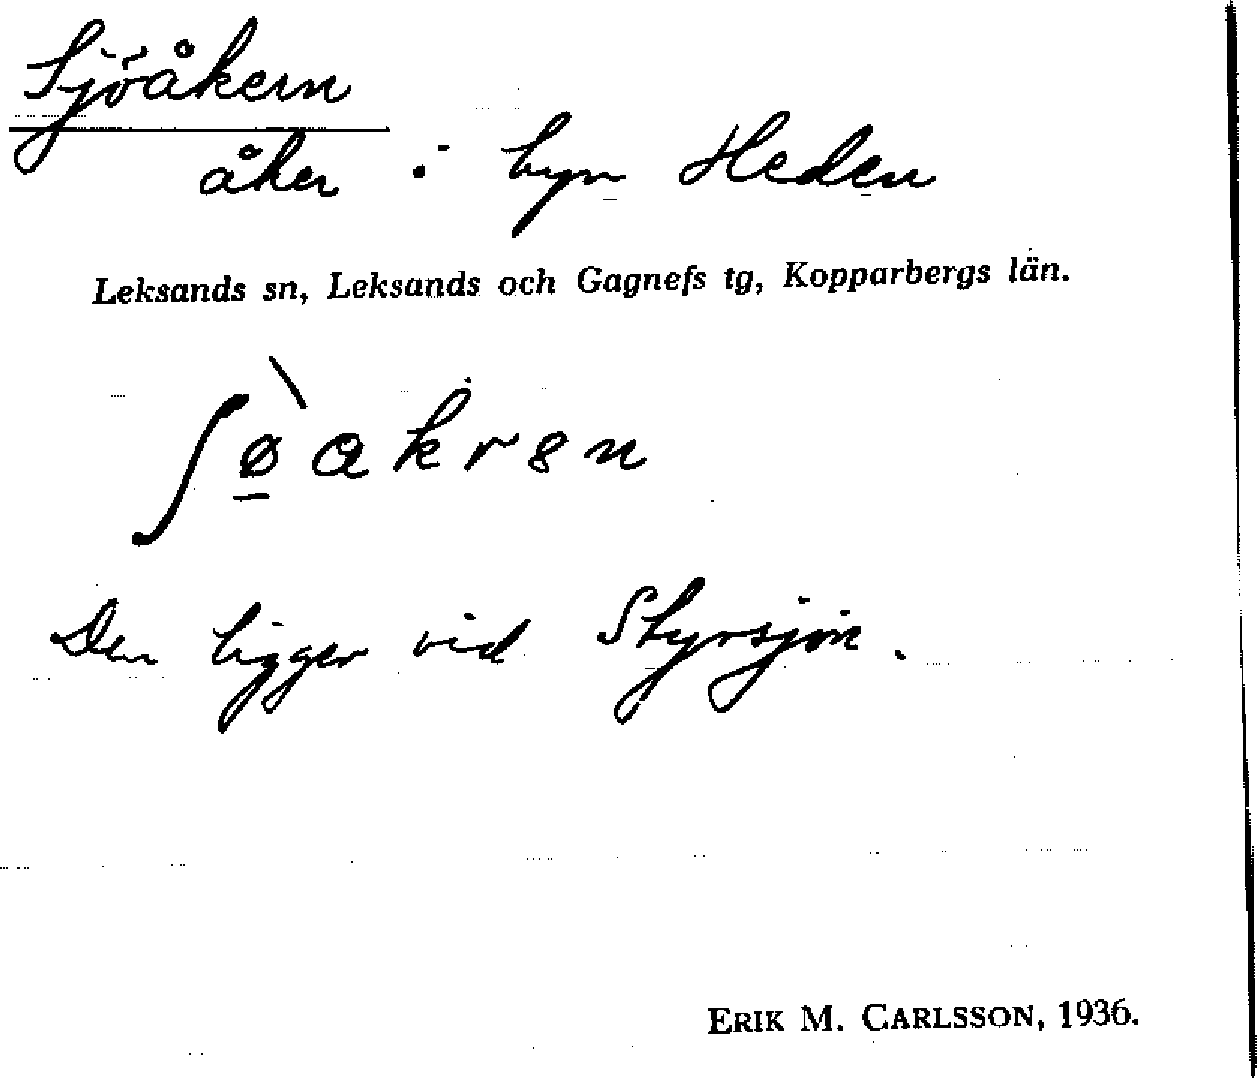 Sjöåkern
åker i byn Heden
Leksands sn, Leksands och Gagnefs tg, Kopparbergs län.
ʃø̠̀akren
Den ligger vid Styrsjön.
ERIK M. CARLSSON, 1936.